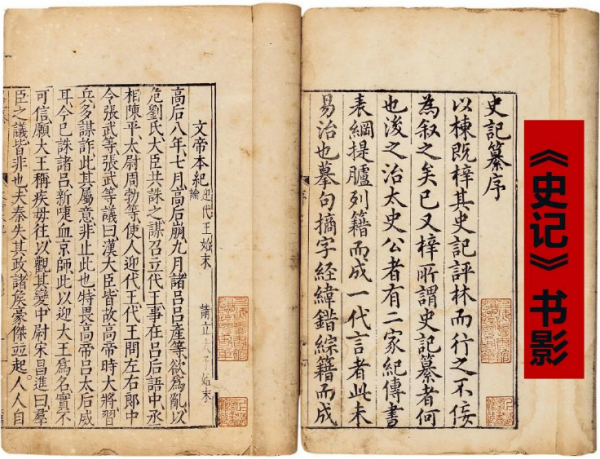 《史记》书影
史記纂序
以棟既梓其史記評林而行之不佞
為叙之矣已又梓所謂史記纂者何
也浚之治太史公者有二家紀傳書
表綱提臚列籍而成一代言者此未
易治也摹句摘字經緯錯綜籍而成
文帝本紀 迎代王始末
高后八年七月高后崩九月諸呂呂產等欲為亂以
危劉氏大臣共誅之謀召立代王事在呂后語中丞
相陳平太尉周勃等使人迎代王代王問左右郎中
令張武等張武等議曰漢大臣皆故高帝時大將習
兵多謀詐此其屬意非止此也特畏高帝呂太后威
耳今已誅諸呂新啑血京師此以迎大王為名實不
可信願大王稱疾毋往以觀其變中尉宋昌進曰羣
臣之議皆非也夫秦失其政諸矦豪傑並起人人自